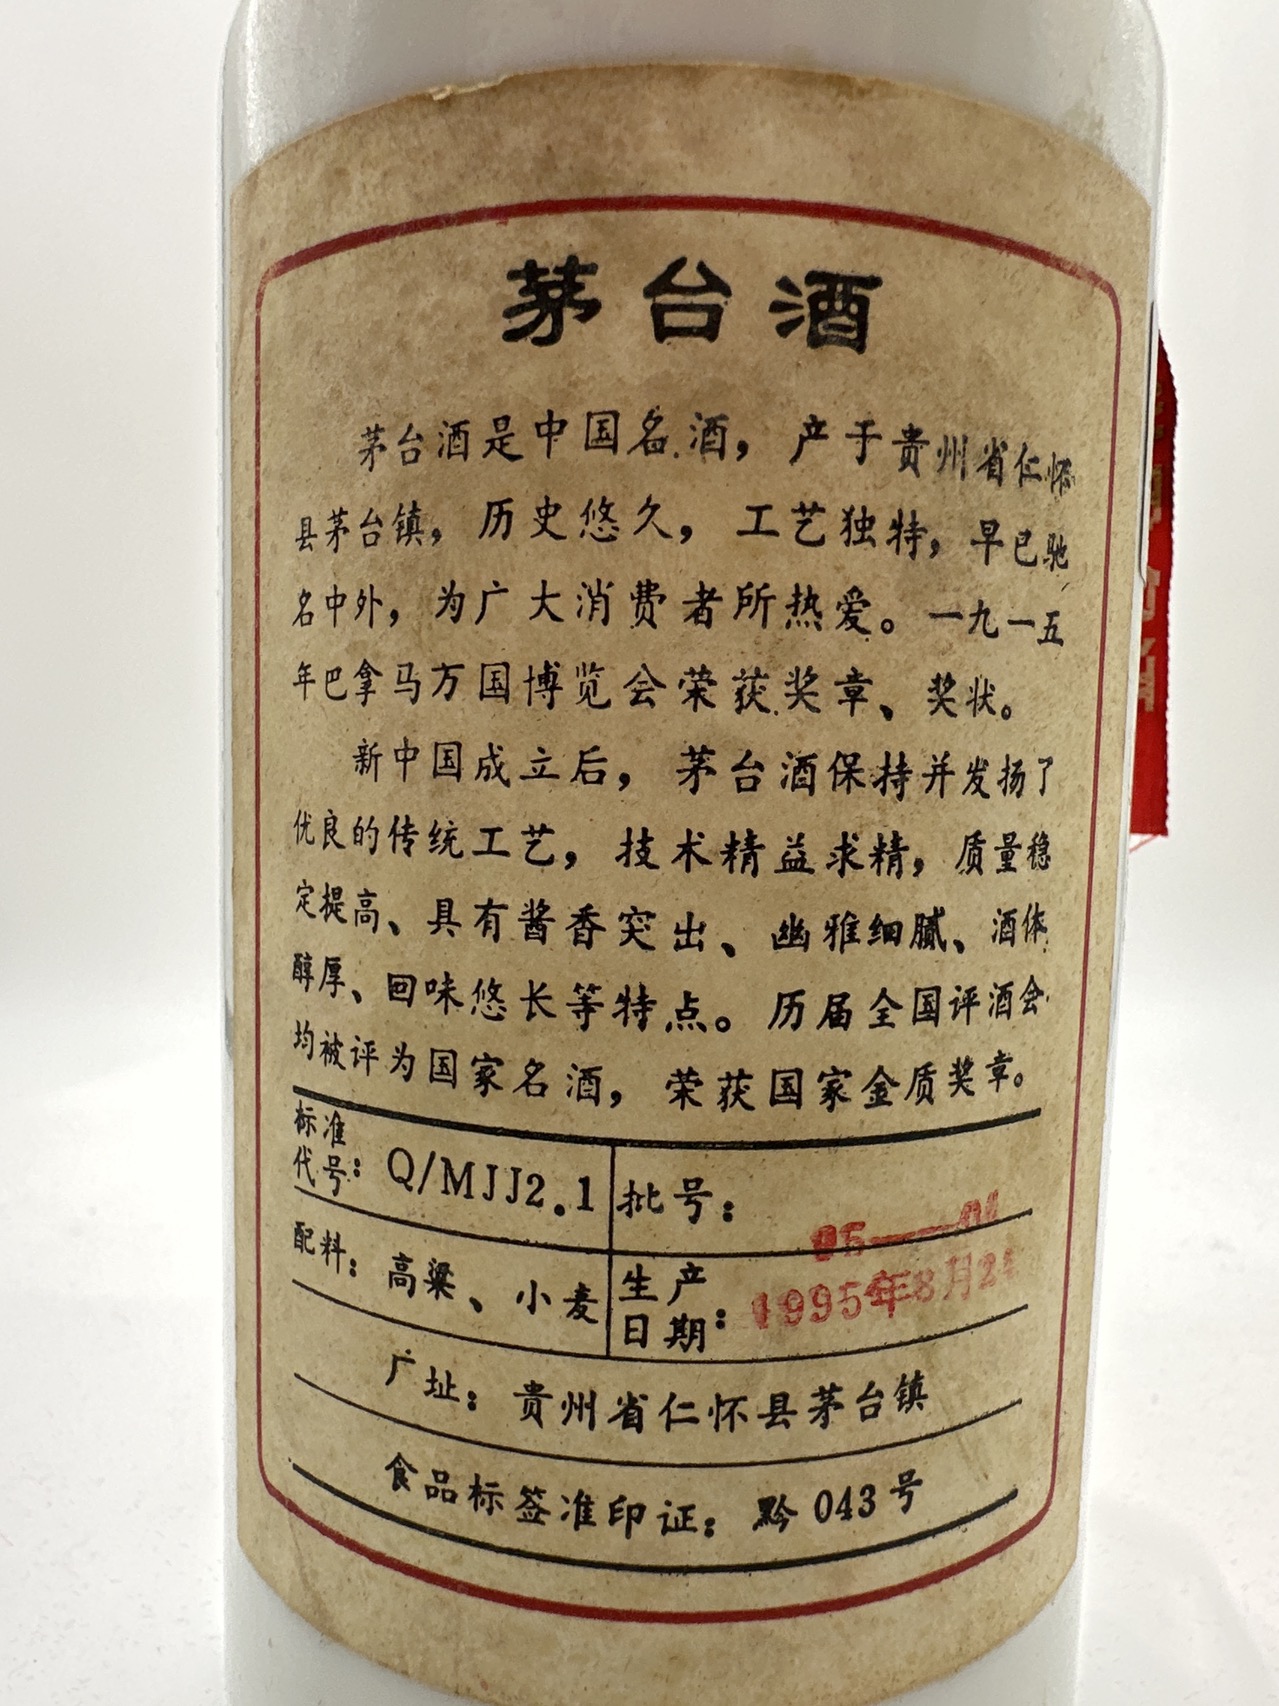 茅台酒
茅台酒是中国名酒，产于贵州省仁怀
县茅台镇，历史悠久，工艺独特，早已驰
名中外，为广大消费者所热爱。一九一五
年巴拿马万国博览会荣获奖章、奖状。
新中国成立后，茅台酒保持并发扬了
优良的传统工艺，技术精益求精，质量稳
定提高、具有酱香突出、幽雅细腻、酒体
醇厚、回味悠长等特点。历届全国评酒会
均被评为国家名酒，荣获国家金质奖章。
标准代号：Q/MJJ2.1
批号：95——01
配料：高粱、小麦
生产日期：1995年8月2
厂址：贵州省仁怀县茅台镇
食品标签准印证：黔043号